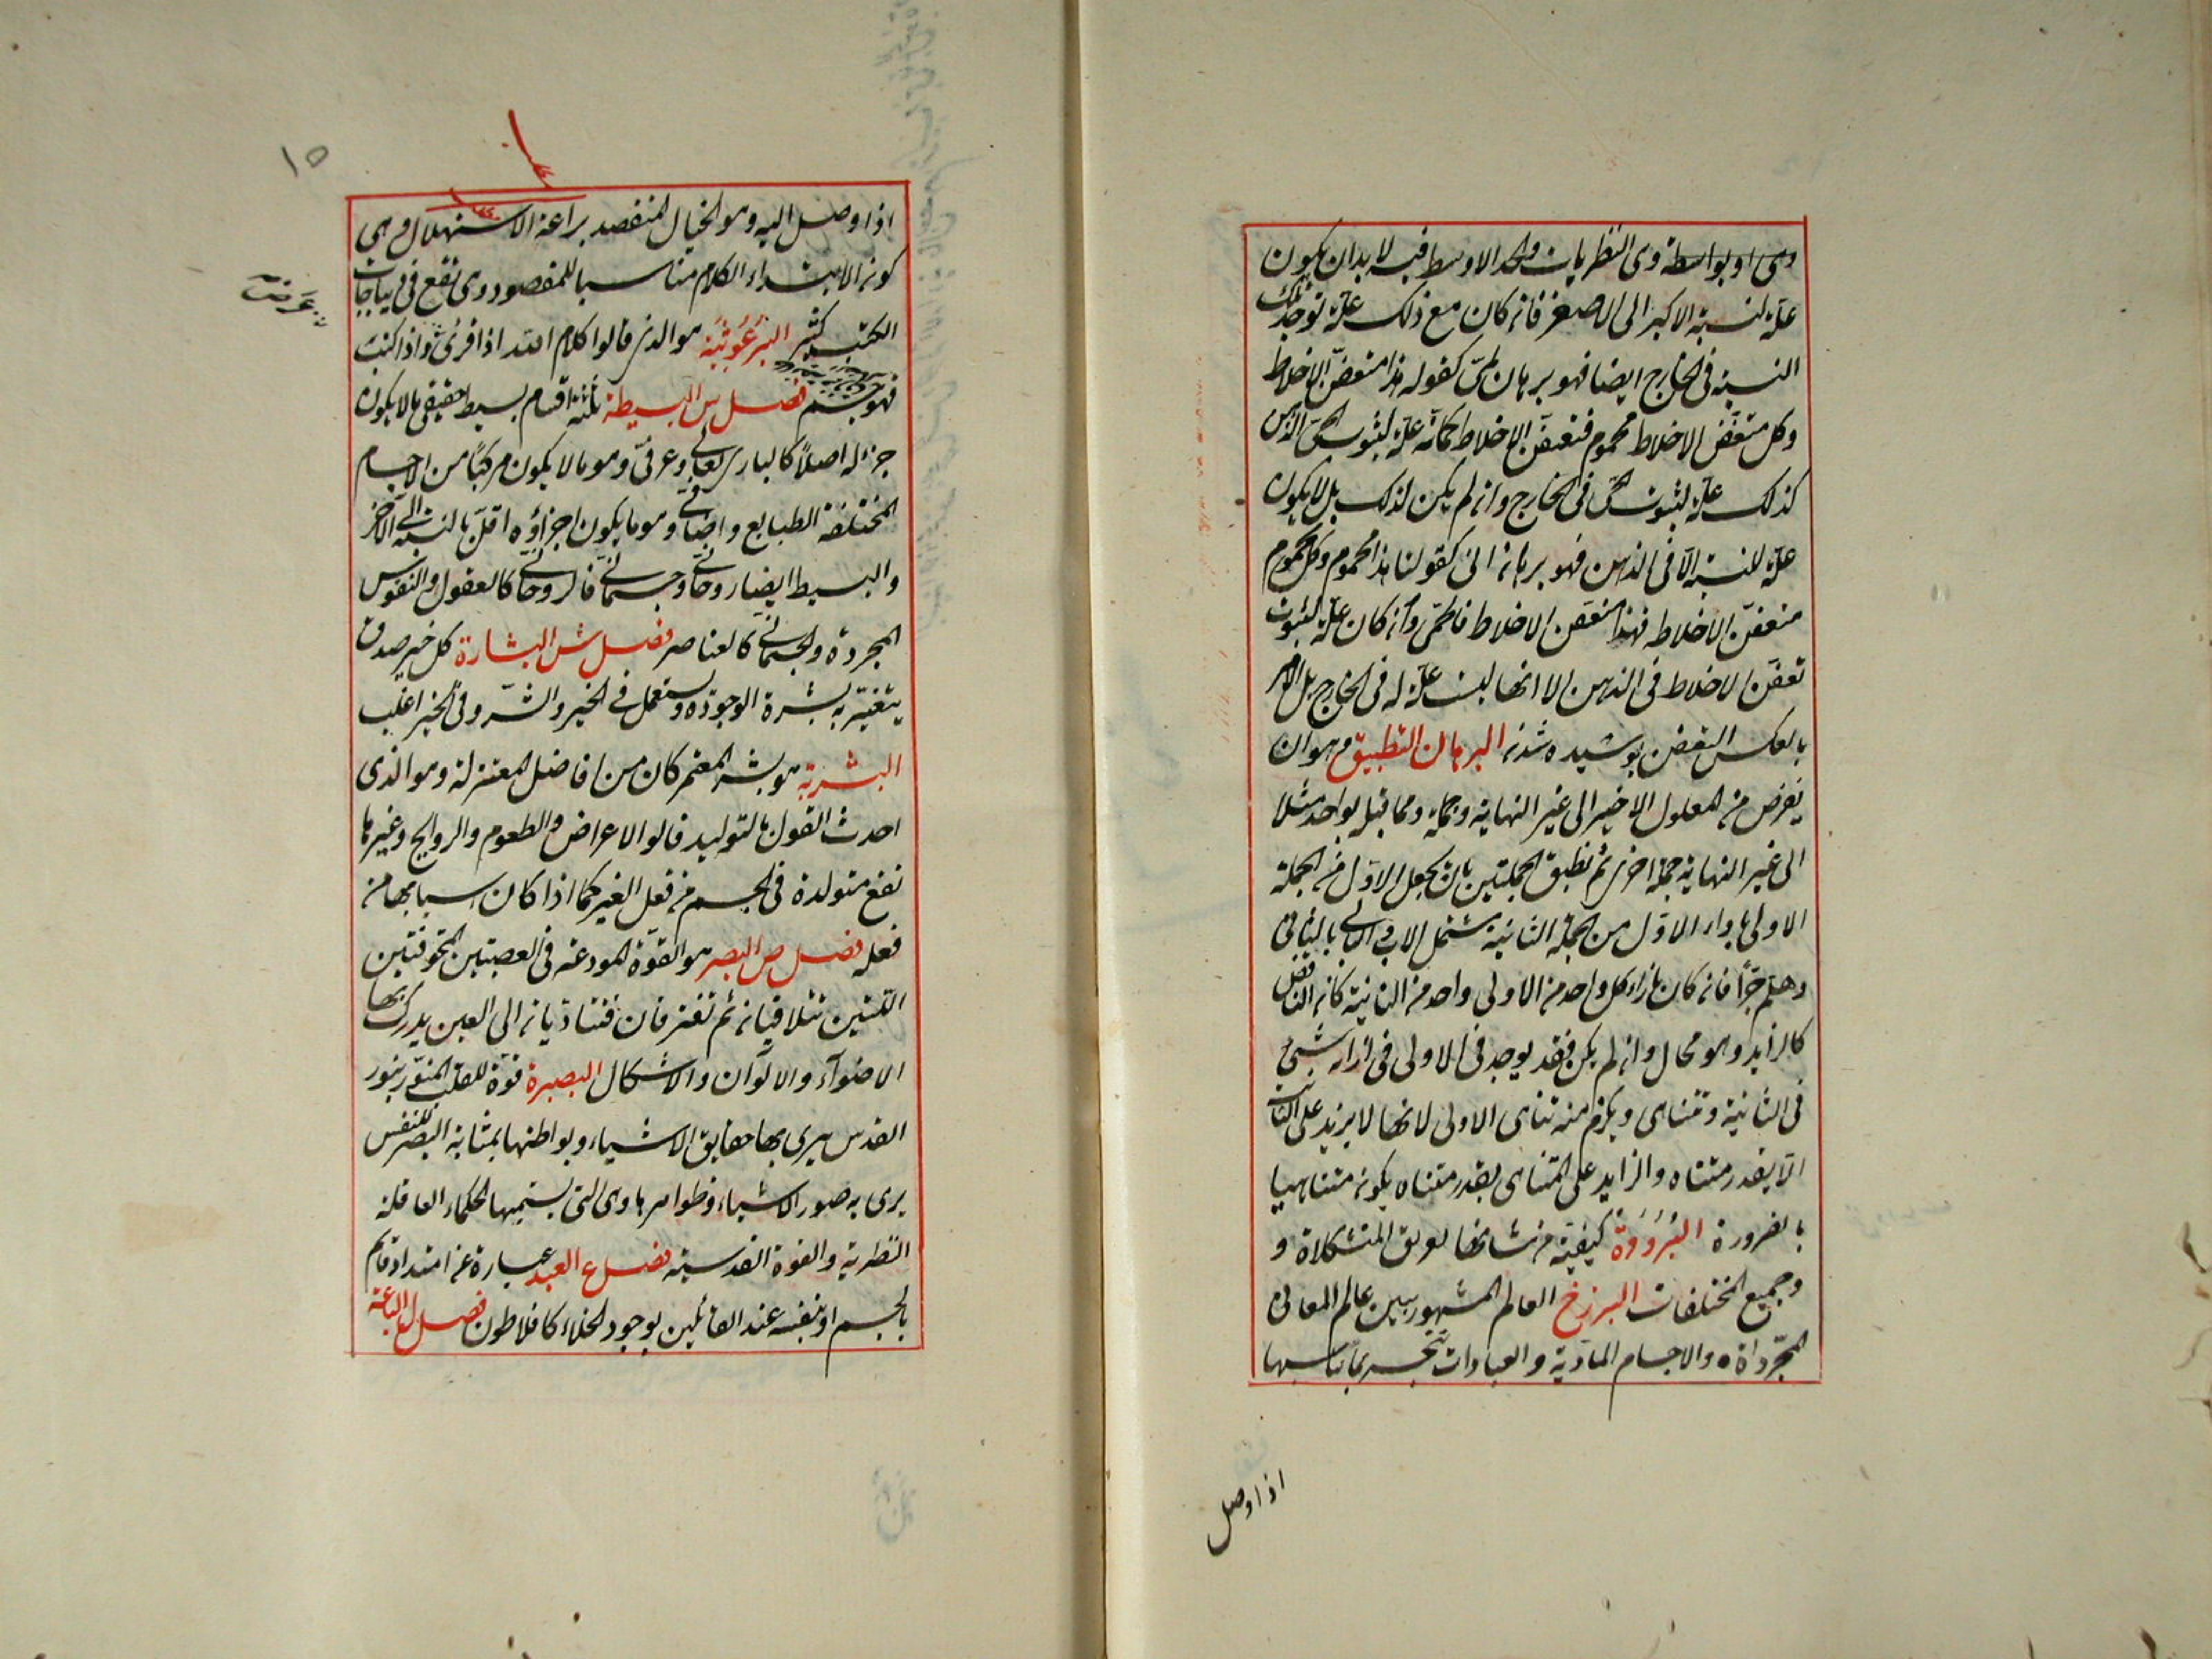 وهى او بواسطة وهى النظريات والحد الاوسط فيه لا بد ان يكون
علة لنسبة الاكبر الى الاصغر فان كان مع ذلك علة لوجود تلك
النسبة فى الخارج ايضا فهو برهان لمّى كقوله هذا متعفن الاخلاط
وكل متعفن الاخلاط محموم فتعفن الاخلاط كما انه علة لثبوت الحمى فى الذهن
كذلك علة لثبوت الحمى فى الخارج وان لم يكن كذلك بل لا يكون
علة للنسبة الا فى الذهن فهو برهان انى كقولنا هذا محموم وكل محموم
متعفن الاخلاط فهذا متعفن الاخلاط فالحمى وان كان علة لثبوت
تعفن الاخلاط فى الذهن الا انها ليست علة له فى الخارج بل الامر
بالعكس التعفن پوشيده شدن البرهان التطبيق هو ان
نفرض من المعلول الاخير الى غير النهاية وجملة ومما قبله بواحد مثلا
الى غير النهاية جملة اخرى ثم نطبق الجملتين بان نجعل الاول من الجملة
الاولى بازاء الاول من الجملة الثانية والثانى بالثانى
وهلم جرا فان كان بازاء كل واحد من الاولى واحد من الثانية كان الناقص
كالزايد وهو محال وان لم يكن فقد يوجد فى الاولى فى ازائه شىء
فى الثانية وتتناهى ويلزم منه تناهى الاولى لانها لا يزيد على الثانية
الا بقدر متناه والزايد على المتناهى بقدر متناه يكون متناهيا
بالضرورة البُرُودَة كيفية من شانها تفريق المتشكلات و
وجميع المختلفات البرزخ العالم المشهور بين عالم المعانى
المجرّداة والاجسام المادية والعبادات تتجسد بما يناسبها
اذا وصل
١٥
اذا وصل اليه وهو الخيال المنفصل براعة الاستهلال وهى
كون الابتداء الكلام مناسبا للمقصود وهى تقع فى ديباجات
الكتب كثير البُرغُوثِيَّة هو الذين قالوا كلام الله اذا قرئ عرض واذا كتب
فهو جسم فصل س البسيطة ثلثة اقسام بسيط حقيقى ما لا يكون
جزء له اصلاً كالبارى تعالى وعرفىّ وهو ما لا يكون مركباً من الاجسام
المختلفة الطبايع واضافىّ وهو ما يكون اجزاؤه اقلّ بالنسبة الى الآخر
والبسيط ايضا روحانى وجسمانى فالروحانى كالعقول والنفوس
المجردة والجسمانى كالعناصر فصل ش البشارة كل خير صدق
يتغير به بشرة الوجوده ويستعمل فى الخير والشر وفى الخير اغلب
البشرية هو بشر المعتمر كان من افاضل المعتزلة وهو الذى
احدث القول بالتوليد قالوا الاعراض والطعوم والروايح وغيرها
تقع متولدة فى الجسم من فعل الغير كما اذا كان اسبابها من
فعله فصل ص البصر هو القوّة المودعة فى العصبتين المجوفتين
اللتين تتلاقيان ثم تفترقان فتتاديان الى العين يدرك بها
الاضوآء والالوان والاشكال البصيرة قوّة للقلب المنوّر بنور
القدس يرى بها حقايق الاشياء وبواطنها بمثابة البصر للنفس
يرى به صور الاشياء وظواهرها وهى التى يسميها الحكماء العاقلة
النظرية والقوة القدسية فصل ع البعد عبارة عن امتداد قايم
بالجسم او بنفسه عند القائلين بوجود الخلاء كافلاطون فصل الباعثة
عَرَضٌ